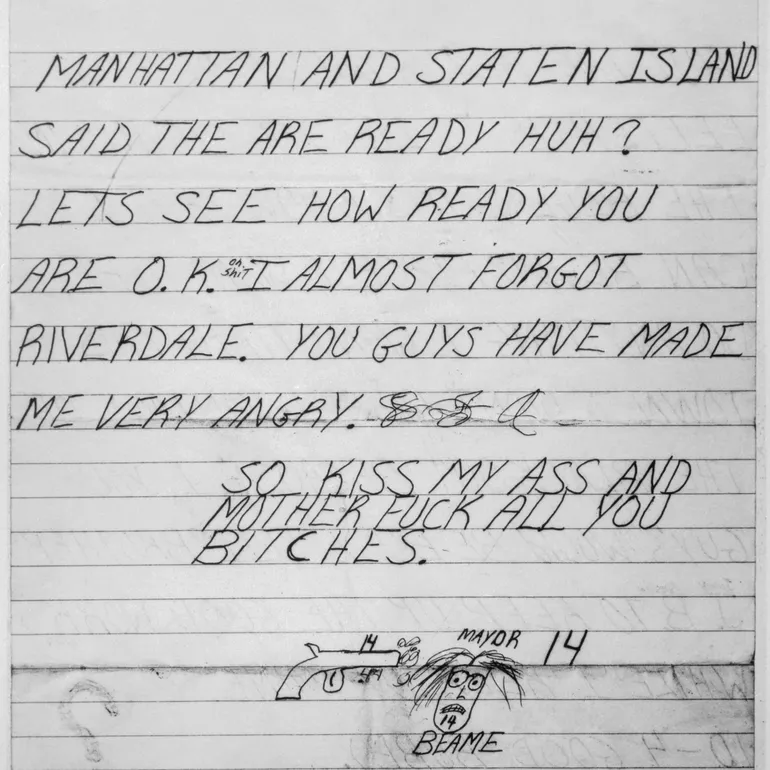 MANHATTAN AND STATEN ISLAND
SAID THE ARE READY HUH?
LETS SEE HOW READY YOU
ARE O.K. oh shit I ALMOST FORGOT
RIVERDALE. YOU GUYS HAVE MADE
ME VERY ANGRY.
SO KISS MY ASS AND
MOTHER FUCK ALL YOU
BITCHES.
MAYOR 14
14
14
BEAME